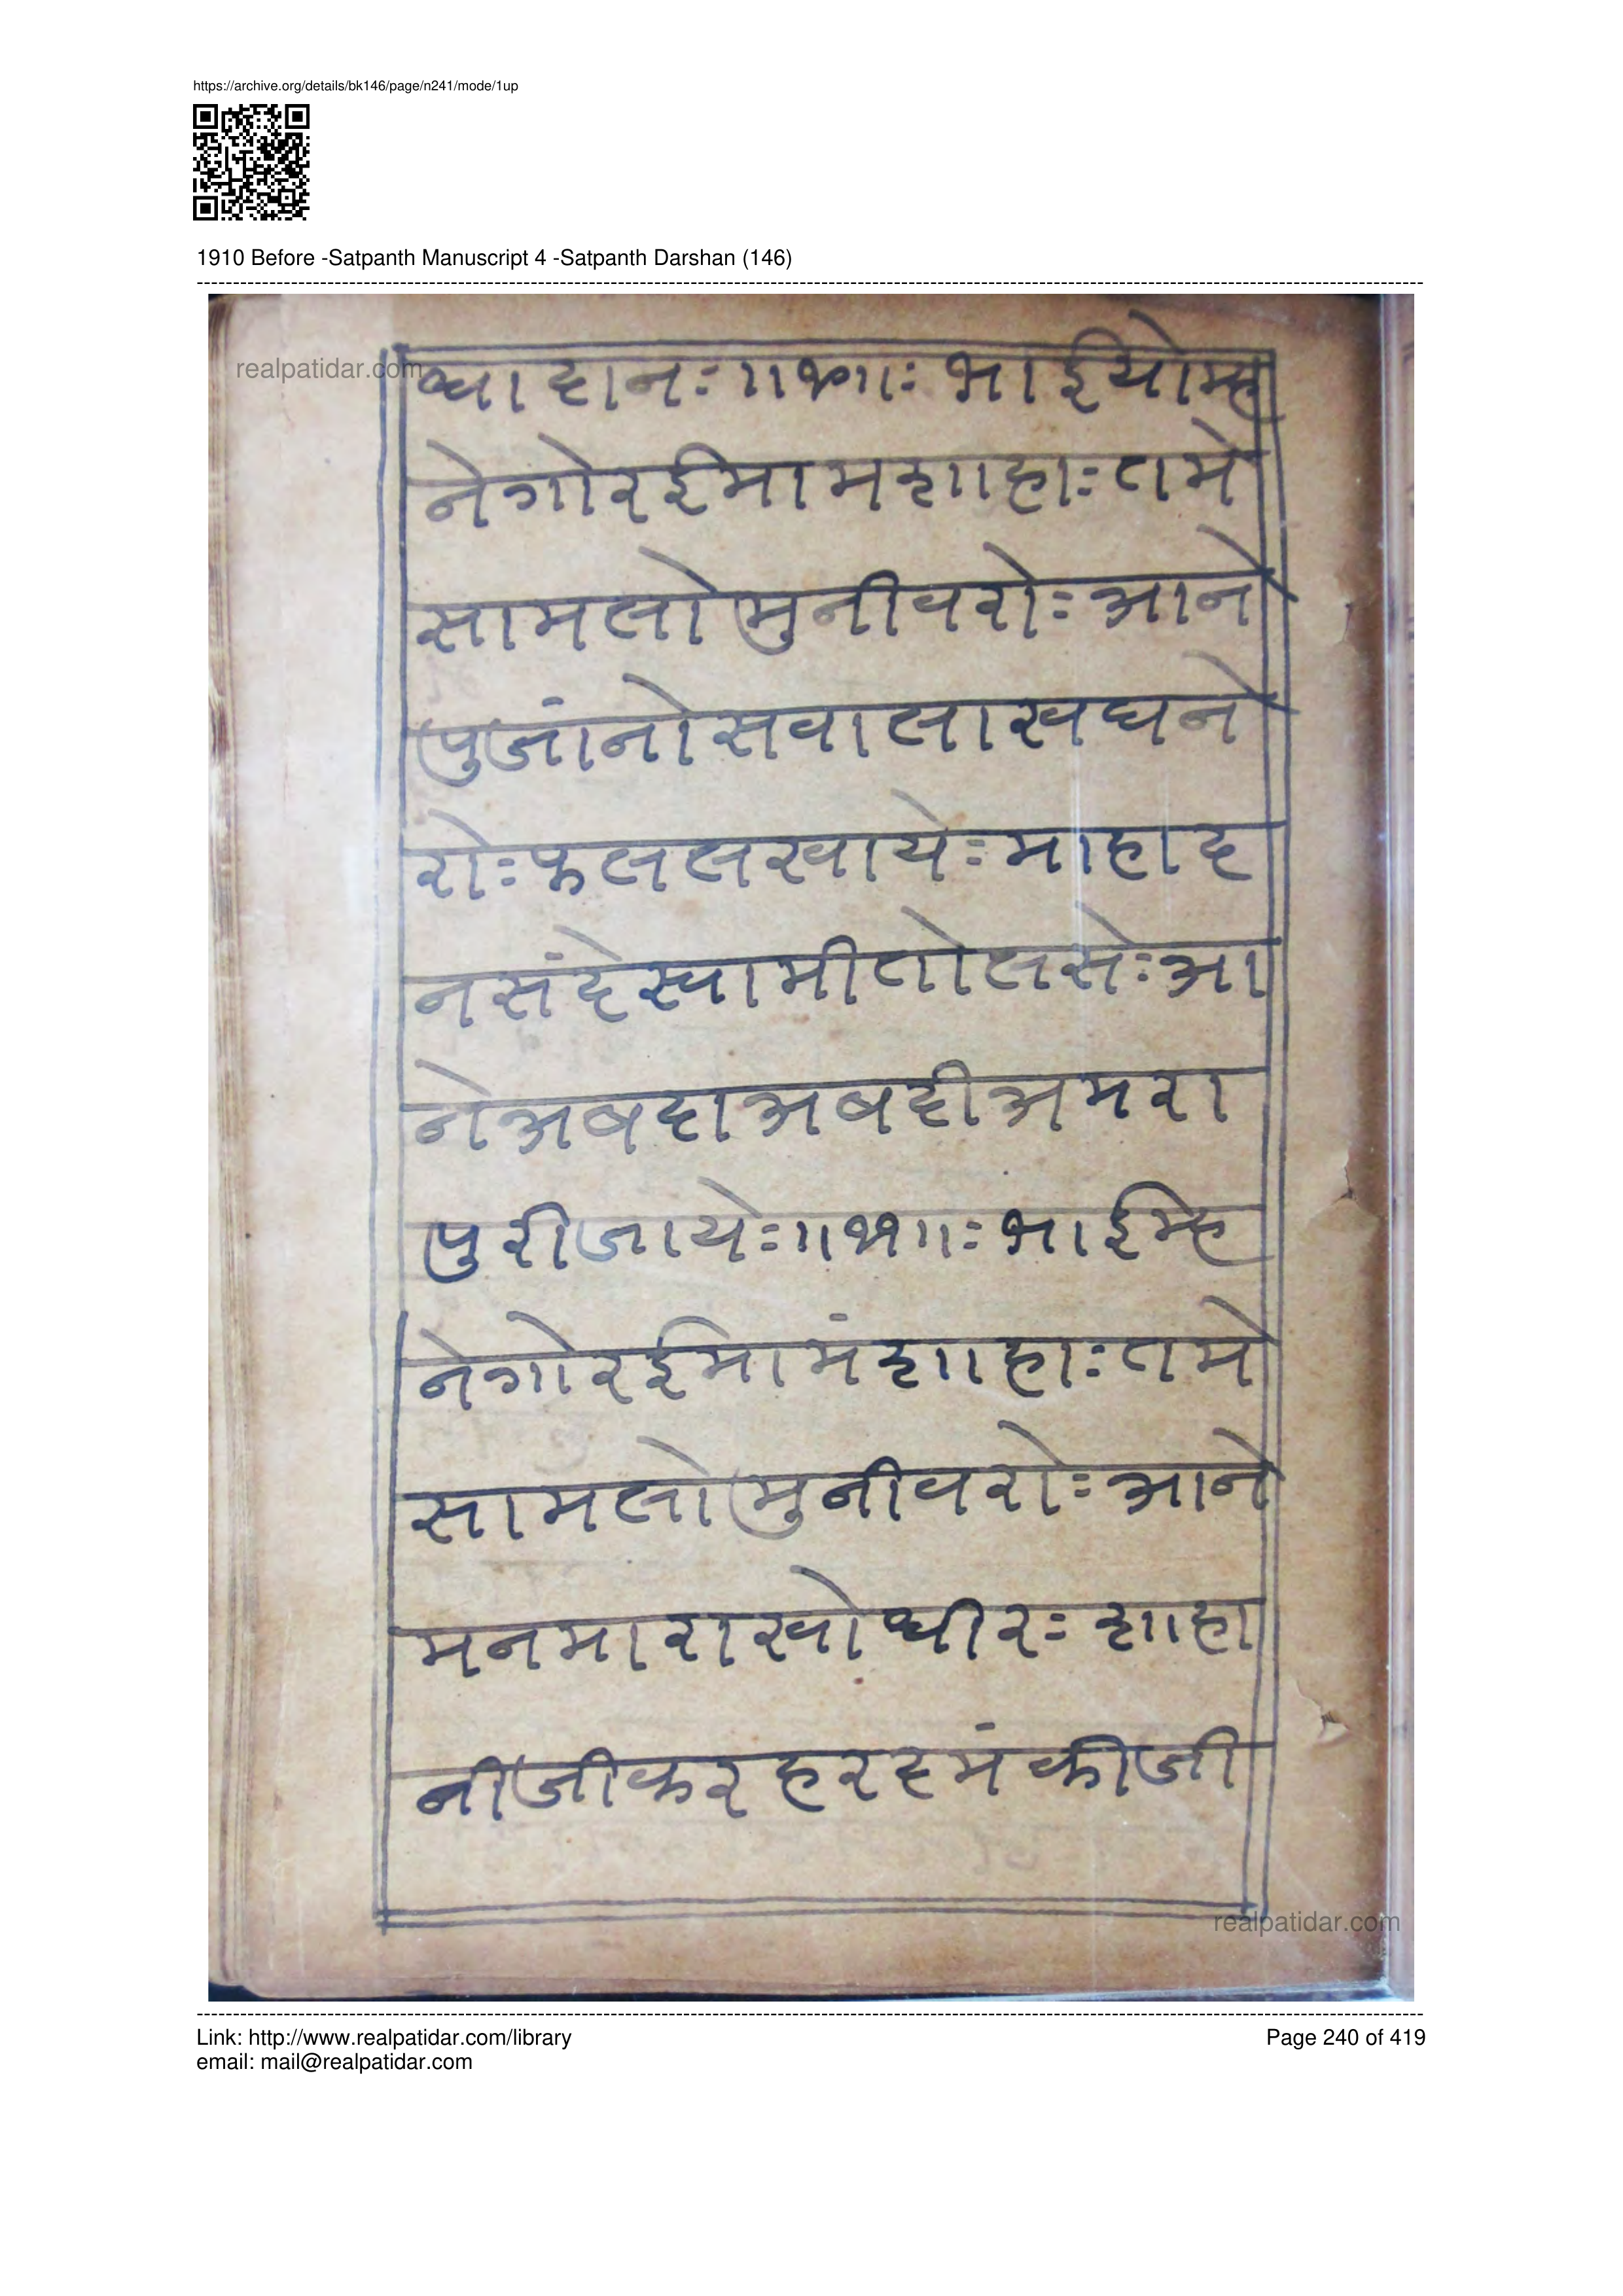 https://archive.org/details/bk146/page/n241/mode/1up
1910 Before -Satpanth Manuscript 4 -Satpanth Darshan (146)
realpatidar.com
ध्यादानः॥१०॥ः भाईयोम्ह
नेगोरईमामशाहाः तमे
सामलोमुनीवरोः आने
पुजांनोसवालाखघने
रोः फललखायेः माहाद
नसंदेस्वामीतोलसेः आ
नेअबदाअबदीअमरा
पुरीजायेः॥११॥ः भाईम्ह
नेगोरईमामंशाहाः तमे
सामलोमुनीवरोः आने
मनमाराखोधीरः शाहा
नीजीकरहरदमंकीजी
realpatidar.com
Link: http://www.realpatidar.com/library
Page 240 of 419
email: mail@realpatidar.com